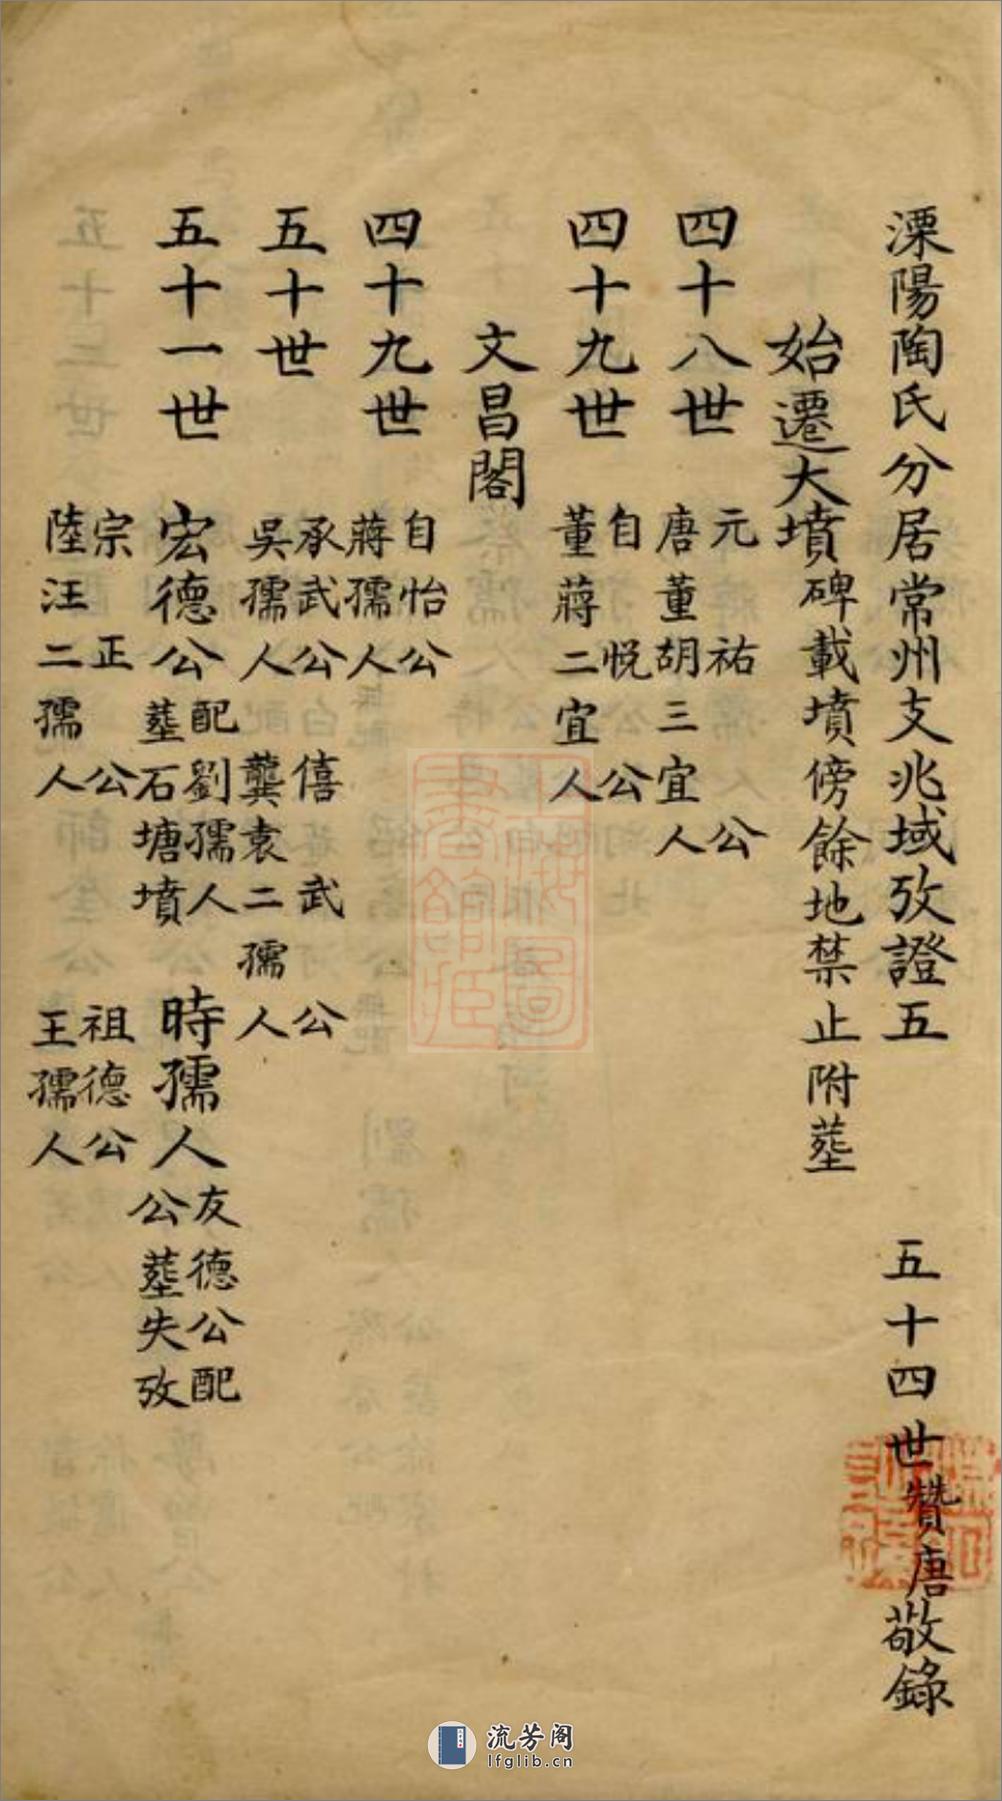 溧陽陶氏分居常州支兆域攷證五 五十四世贊唐敬錄
始遷大墳碑載墳傍餘地禁止附塟
四十八世 元祐公 唐董胡三宜人
四十九世 自悅公 董蔣二宜人
文昌閣
四十九世 自怡公 蔣孺人
五十世 承武公 吳孺人 僖武公 龔袁二孺人
五十一世 宏德公配劉孺人塟石塘墳 時孺人友德公配公塟失攷
宗正公 陸汪二孺人 祖德公 王孺人
流芳阁
lfglib.cn